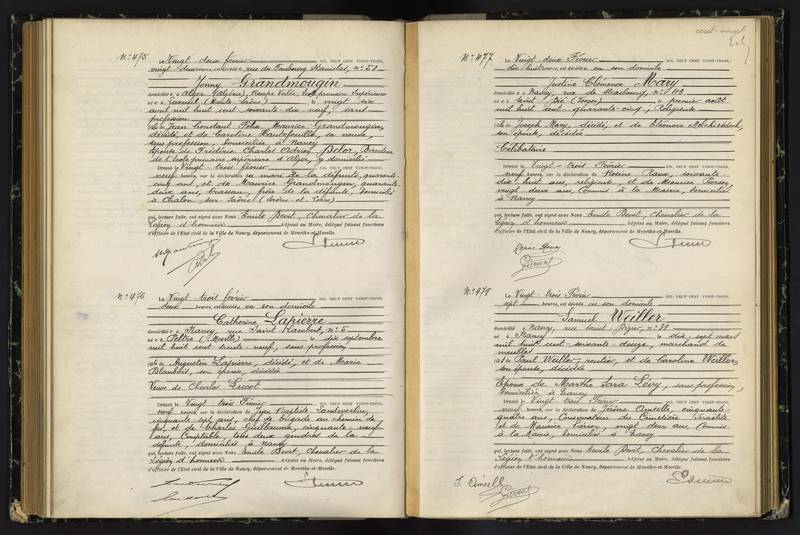 N° 475
Le Vingt deux février MIL NEUF CENT VINGT-TROIS,
vingt deux heures, est décédée rue du Faubourg Stanislas, n° 51
Jenny Grandmougin
domiciliée à Alger (Algérie), Rampe Valée, école primaire Supérieure
née à Luxeuil (Haute Saône) le vingt six
avril mil huit cent soixante dix neuf, sans
profession
fille de Jean Constant Félix Maurice Grandmougin,
décédé, et de Caroline Hautefeuille, sa veuve,
sans profession, domiciliée à Nancy
Epouse de Frédéric Charles Adrien Directeur
de l'école primaire supérieure d'Alger, y domicilié
Dressé le Vingt-trois février
neuf heures, sur la déclaration du mari de la défunte, quarante
cinq ans, et de Maurice Grandmougin, quarante
deux ans, frère de la défunte, domicilié
à Chalon sur Saône (Saône et Loire)
qui, lecture faite, ont signé avec Nous Emile Chevalier de la
Légion d'honneur Adjoint au Maire, délégué faisant fonctions
d'officier de l'Etat civil de la Ville de Nancy, département de Meurthe-et-Moselle.
N° 476
Le Vingt trois février MIL NEUF CENT VINGT-TROIS,
deux heures, est décédée en son domicile
Catherine Lapierre
domiciliée à Nancy, rue Saint Lambert, n° 5
née à Peltre (Moselle) le dix septembre
mil huit cent trente neuf, sans profession
fille de Augustin Lapierre, décédé, et de Marie
son épouse, décédée
Veuve de Charles Lucot
Dressé le Vingt trois Février
neuf heures, sur la déclaration de Jean Baptiste
cinquante sept ans, chef de brigade au chemin de
fer, et de Charles Guillaume, cinquante neuf
ans, Comptable, tous deux gendres de la
défunte, domiciliés à Nancy
qui, lecture faite, ont signé avec Nous Emile Chevalier de la
Légion d'honneur Adjoint au Maire, délégué faisant fonctions
d'officier de l'Etat civil de la Ville de Nancy, département de Meurthe-et-Moselle.
cent-vingt
N° 477
Le Vingt-deux Février MIL NEUF CENT VINGT-TROIS,
dix huit heures, est décédée en son domicile
Justine Clémence Mary
domiciliée à Nancy, rue de Strasbourg, n° 113
née à Saint Dié (Vosges) le premier août
mil huit cent quarante-cinq, Religieuse
fille de Joseph Mary, décédé, et de Eléonore
son épouse, décédée
Célibataire
Dressé le Vingt-trois Février
neuf heures, sur la déclaration de soixante-
dix huit ans, religieuse, et de Maurice
vingt deux ans, Commis à la Mairie, domiciliés
à Nancy
qui, lecture faite, ont signé avec Nous Emile Chevalier de la
Légion d'honneur Adjoint au Maire, délégué faisant fonctions
d'officier de l'Etat civil de la Ville de Nancy, département de Meurthe-et-Moselle.
N° 478
Le Vingt-trois Février MIL NEUF CENT VINGT-TROIS,
sept heures, est décédé en son domicile
Samuel Weiller
domicilié à Nancy, rue Saint Dizier, n° 39
né à Nancy le dix sept mars
mil huit cent soixante douze, marchand de
meubles
fils de Paul Weiller, rentier, et de Caroline Weiller,
son épouse, décédés
Epoux de Marthe Sara Lévy, sans profession,
domiciliée à Nancy
Dressé le Vingt-trois Février
neuf heures, sur la déclaration de Jérôme cinquante-
quatre ans, Conservateur du Cimetière Israélite
et de Maurice vingt deux ans, Commis
à la Mairie, domiciliés à Nancy
qui, lecture faite, ont signé avec Nous Emile Chevalier de la
Légion d'honneur Adjoint au Maire, délégué faisant fonctions
d'officier de l'Etat civil de la Ville de Nancy, département de Meurthe-et-Moselle.